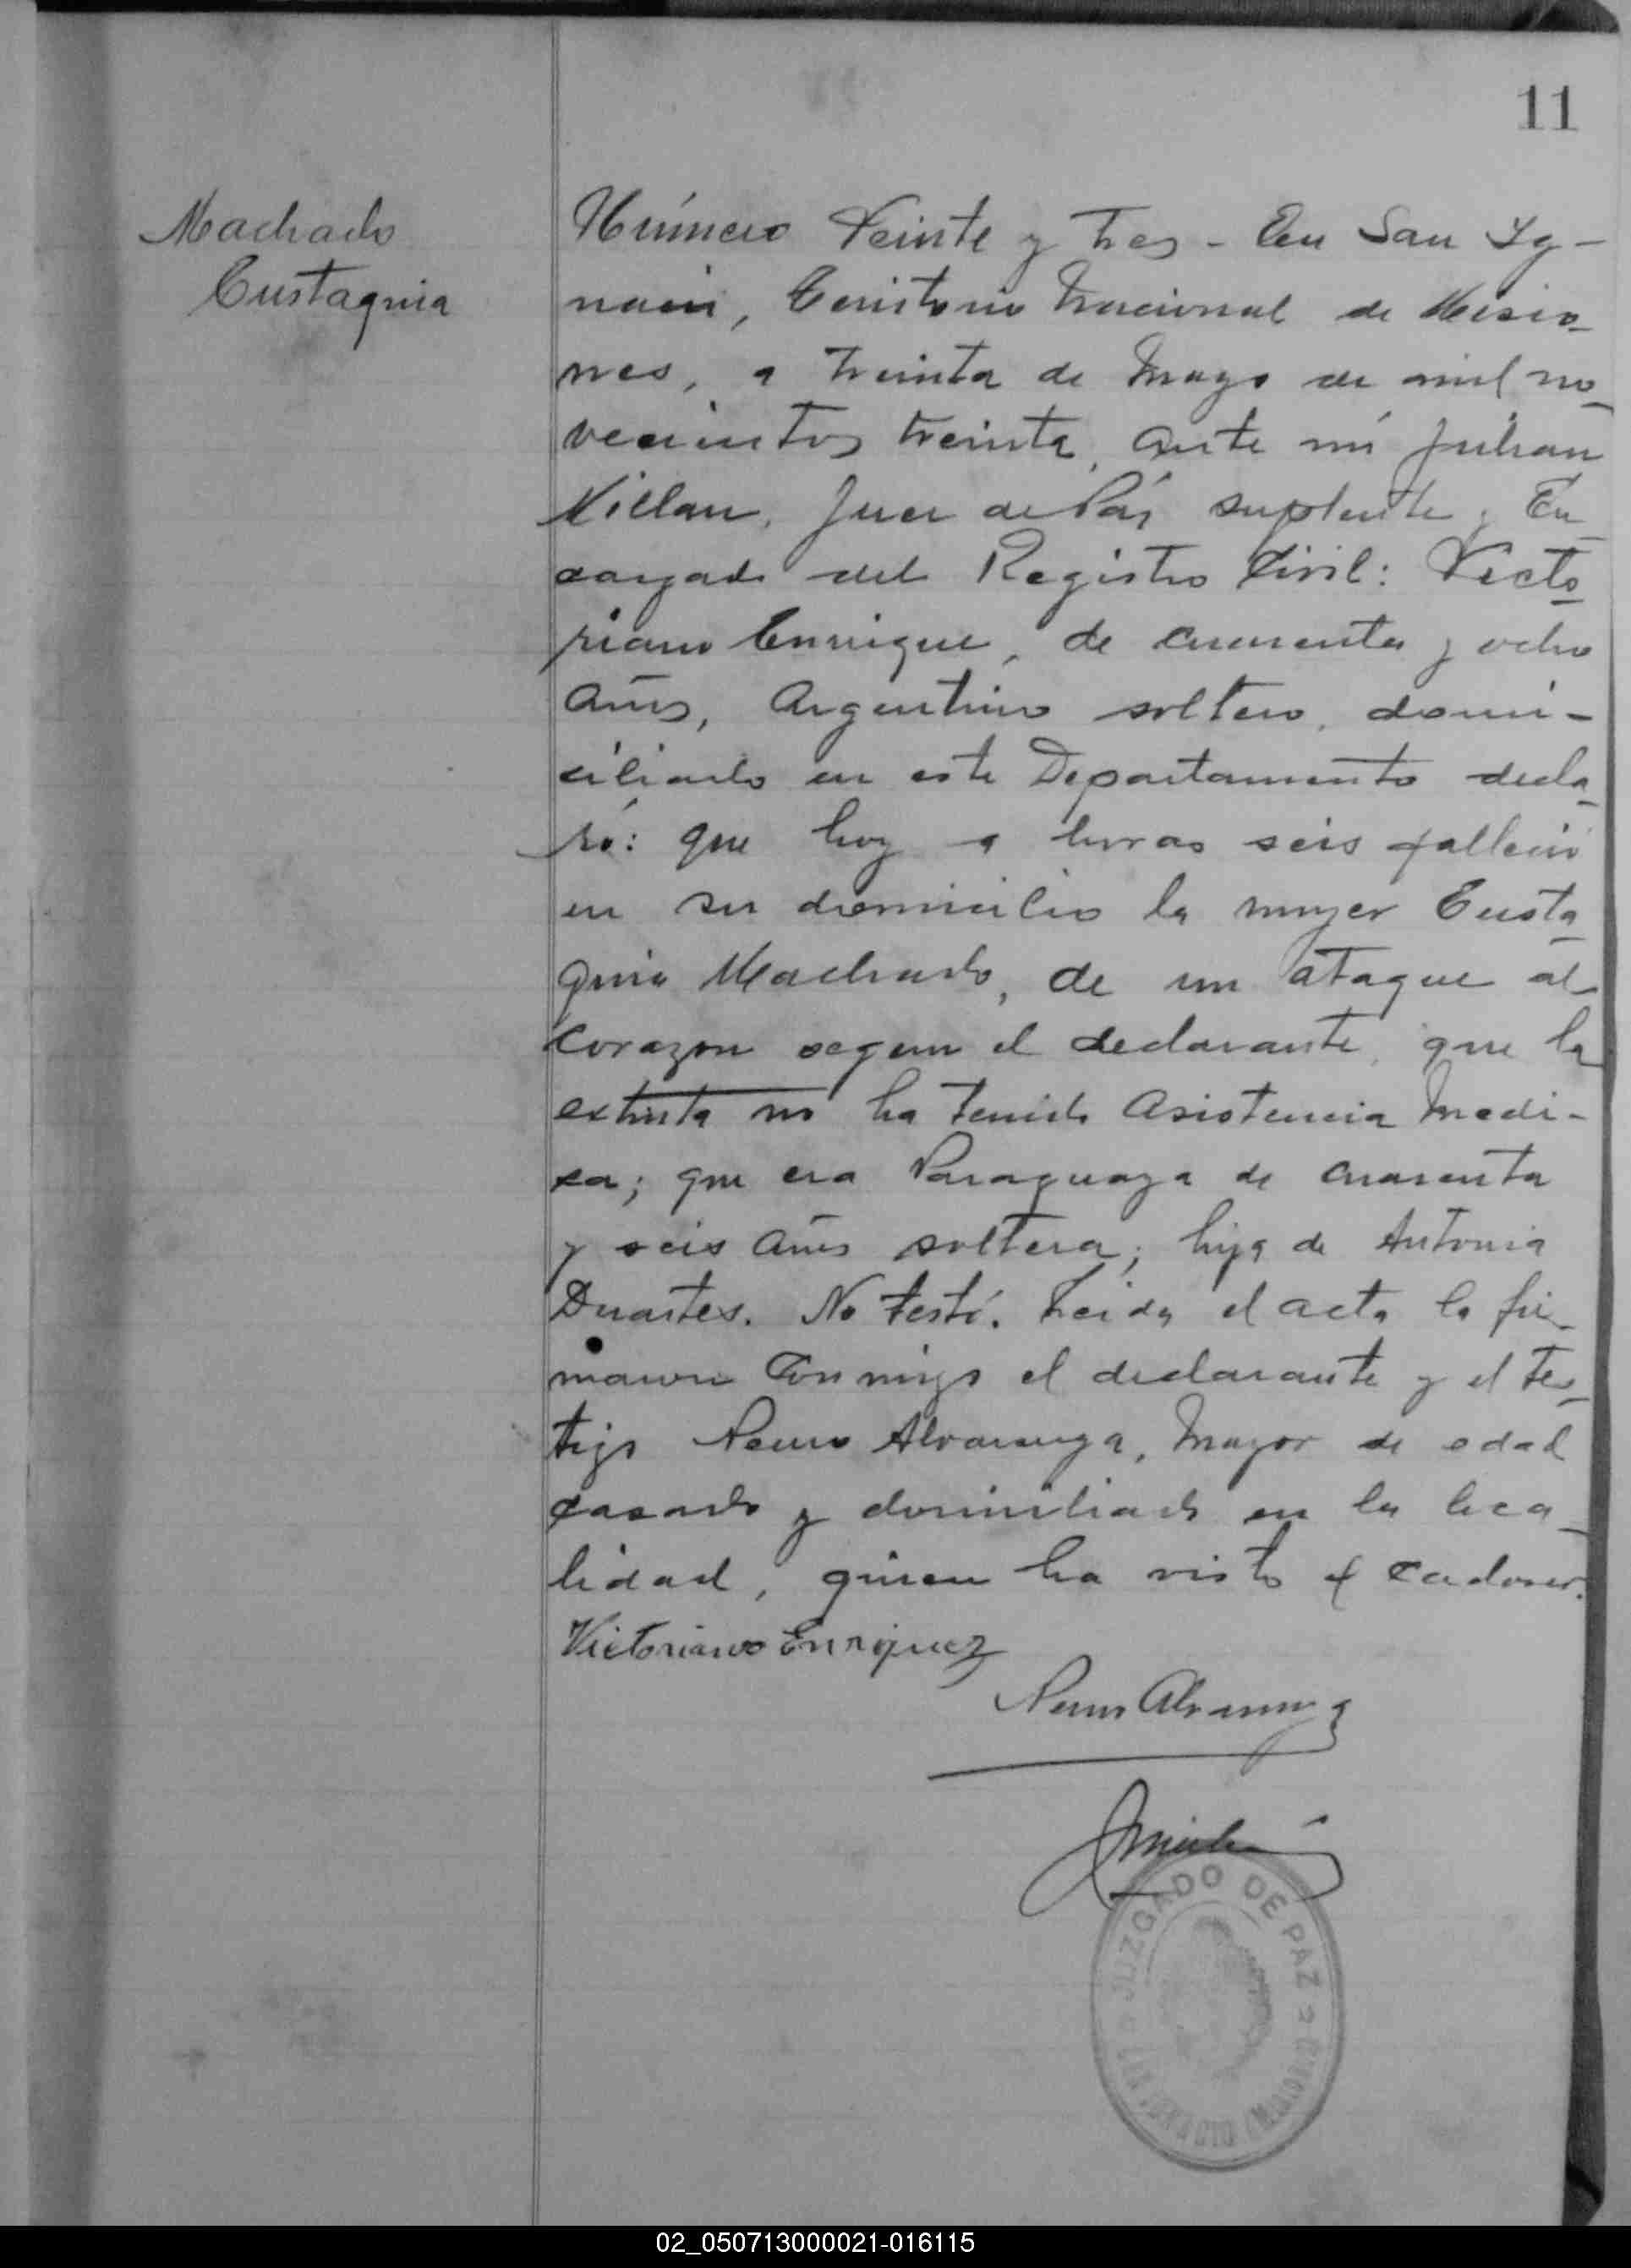 11
Machado
Eustaquia
Número Veinte y tres - En San Yg-
nacio, Territorio Nacional de Misio-
nes, a treinta de Mayo de mil no-
vecientos treinta, ante mí Julian
Millan, Juez de Páz suplente y En-
cargado del Registro Civil: Victo-
riano Enrique, de cuarenta y ocho
años, Argentino soltero, domi-
ciliado en este Departamento decla-
ró: que hoy a horas seis falleció
en su domicilio la mujer Eusta-
quia Machado, de un ataque al
corazon segun el declarante, que la
extinta no ha tenido asistencia medi-
ca; que era Paraguaya de cuarenta
y seis años soltera; hija de Antonia
Duartes. No testó. Leida el acta la fir-
maron conmigo el declarante y el tes-
tigo Alvarenga, Mayor de edad
casado y domiciliado en la loca-
lidad, quien ha visto el cadaver.
Victoriano Enriquez
JUZGADO DE PAZ
SAN IGNACIO (MISIONES)
02_050713000021-016115